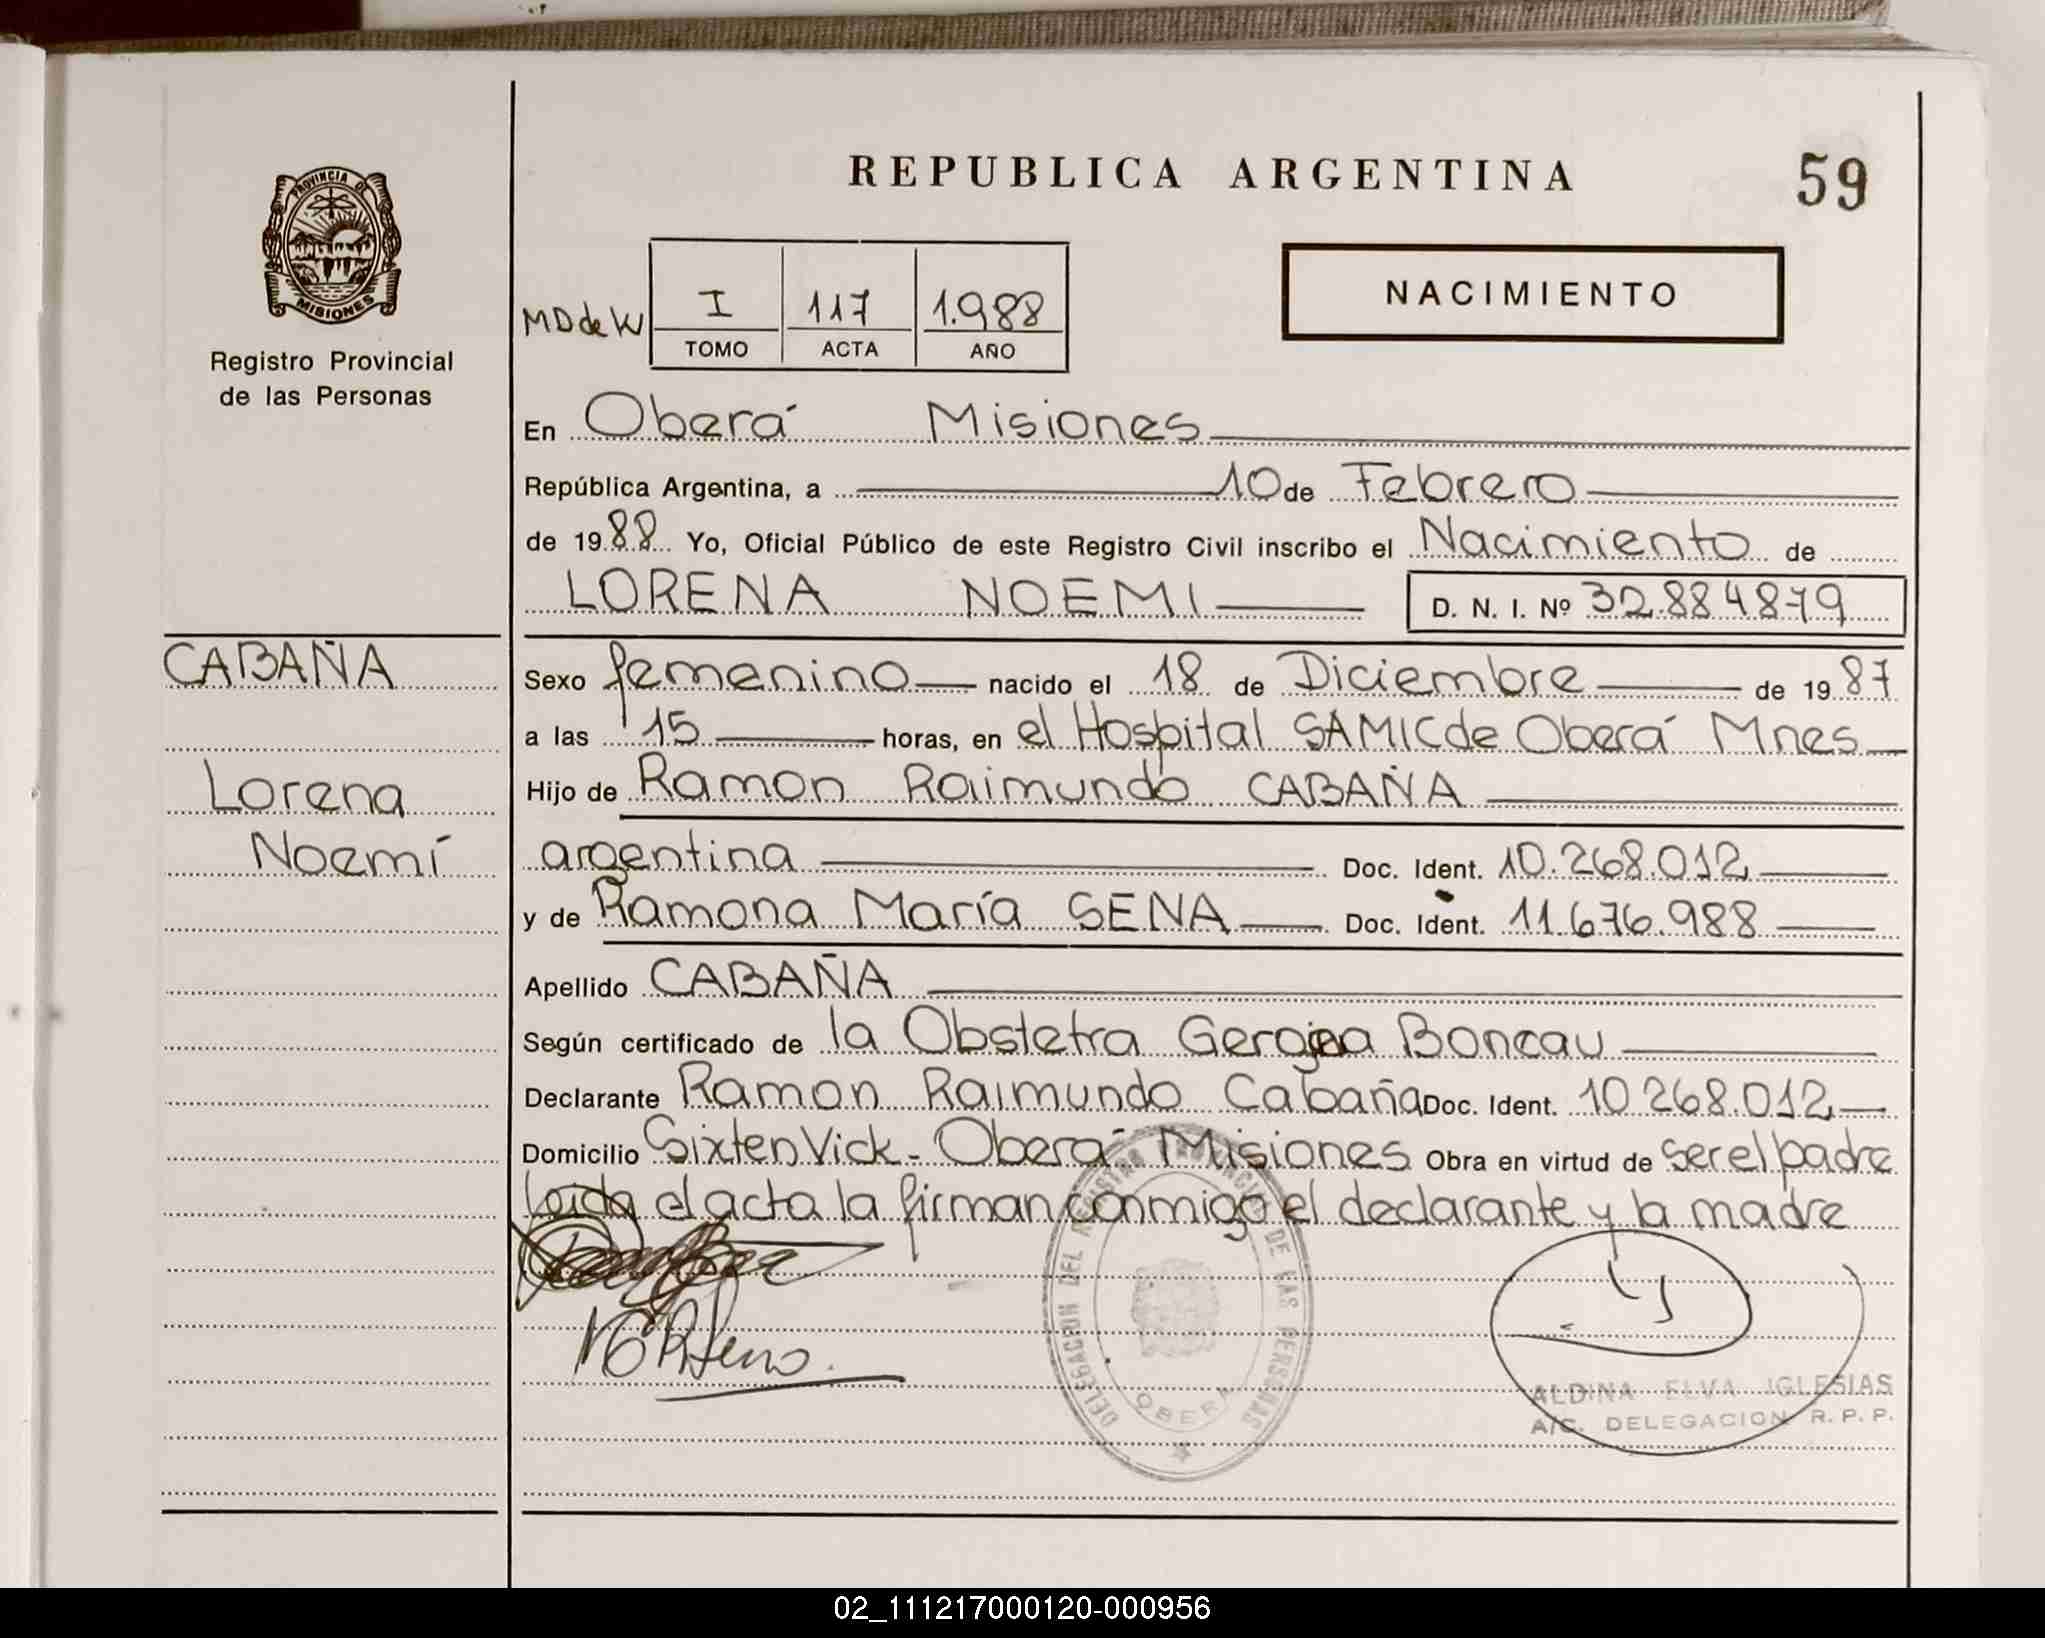 REPUBLICA ARGENTINA
59
PROVINCIA DE
MISIONES
Registro Provincial
de las Personas
MD de W
I 117 1.988
TOMO ACTA AÑO
NACIMIENTO
En Oberá Misiones
República Argentina, a 10 de Febrero
de 1988 Yo, Oficial Público de este Registro Civil inscribo el Nacimiento de
LORENA NOEMI D. N. I. Nº 32.884879
CABAÑA
Lorena
Noemí
Sexo femenino nacido el 18 de Diciembre de 1987
a las 15 horas, en el Hospital SAMIC de Oberá Mnes
Hijo de Ramon Raimundo CABAÑA
argentina Doc. Ident. 10.268.012
y de Ramona María SENA Doc. Ident. 11.676.988
Apellido CABAÑA
Según certificado de la Obstetra Boncau
Declarante Ramon Raimundo Cabaña Doc. Ident. 10 268.012
Domicilio Sixten Vick - Oberá Misiones Obra en virtud de ser el padre
Leida el acta la firman conmigo el declarante y la madre
DELEGACION DEL REGISTRO PROVINCIAL DE LAS PERSONAS
OBERA
ALDINA ELVA IGLESIAS
A/C. DELEGACION R. P. P.
02_111217000120-000956